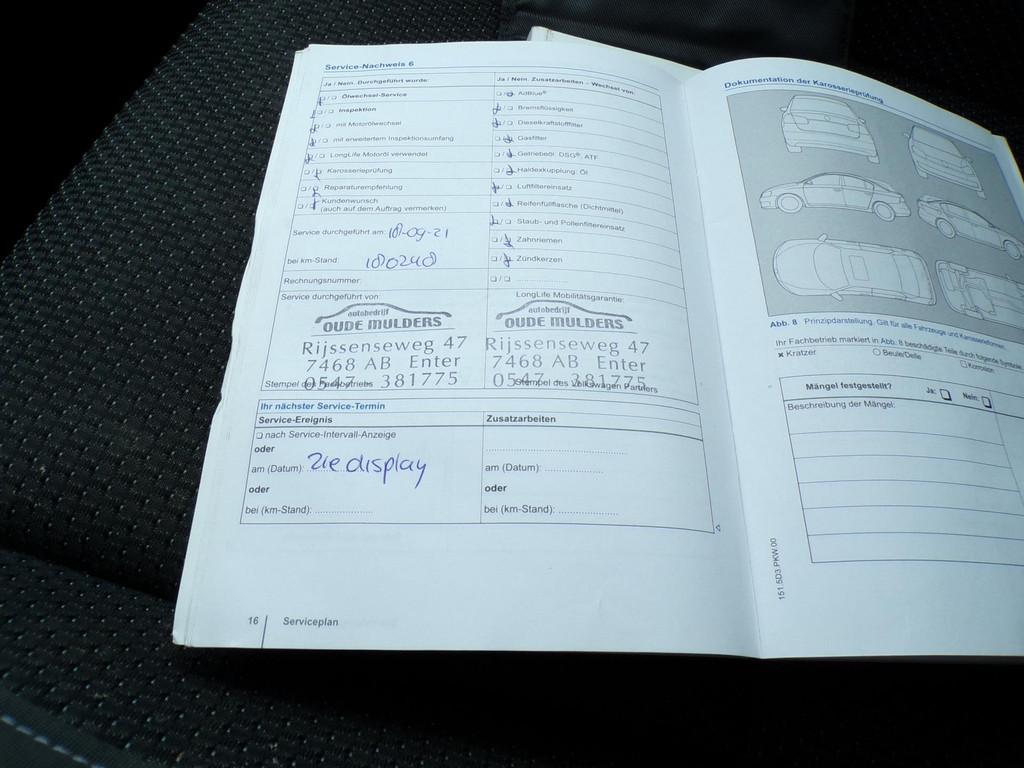 Service-Nachweis 6
Ja / Nein. Durchgeführt wurde:
Ölwechsel-Service
Inspektion
mit Motorölwechsel
mit erweitertem Inspektionsumfang
LongLife Motoröl verwendet
Karosserieprüfung
Reparaturempfehlung
Kundenwunsch
(auch auf dem Auftrag vermerken)
Service durchgeführt am: 18-09-21
bei km-Stand: 180248
Rechnungsnummer:
Service durchgeführt von:
autobedrijf
OUDE MULDERS
Rijssenseweg 47
7468 AB Enter
0547 - 381775
Stempel des Fachbetriebs
Ja / Nein. Zusatzarbeiten – Wechsel von:
AdBlue®
Bremsflüssigkeit
Dieselkraftstofffilter
Gasfilter
Getriebeöl: DSG®, ATF
Haldexkupplung: Öl
Luftfiltereinsatz
Reifenfüllflasche (Dichtmittel)
Staub- und Pollenfiltereinsatz
Zahnriemen
Zündkerzen
LongLife Mobilitätsgarantie:
autobedrijf
OUDE MULDERS
Rijssenseweg 47
7468 AB Enter
0547 - 381775
Stempel des Volkswagen Partners
Ihr nächster Service-Termin
Service-Ereignis
nach Service-Intervall-Anzeige
oder
am (Datum): zie display
oder
bei (km-Stand):
Zusatzarbeiten
am (Datum):
oder
bei (km-Stand):
16 Serviceplan
Dokumentation der Karosserieprüfung
Abb. 8 Prinzipdarstellung. Gilt für alle Fahrzeuge und Karosserieformen.
Ihr Fachbetrieb markiert in Abb. 8 beschädigte Teile durch folgende Symbole
× Kratzer
Beule/Delle
Korrosion
Mängel festgestellt? Ja: Nein:
Beschreibung der Mängel:
151.5D3.PKW.00